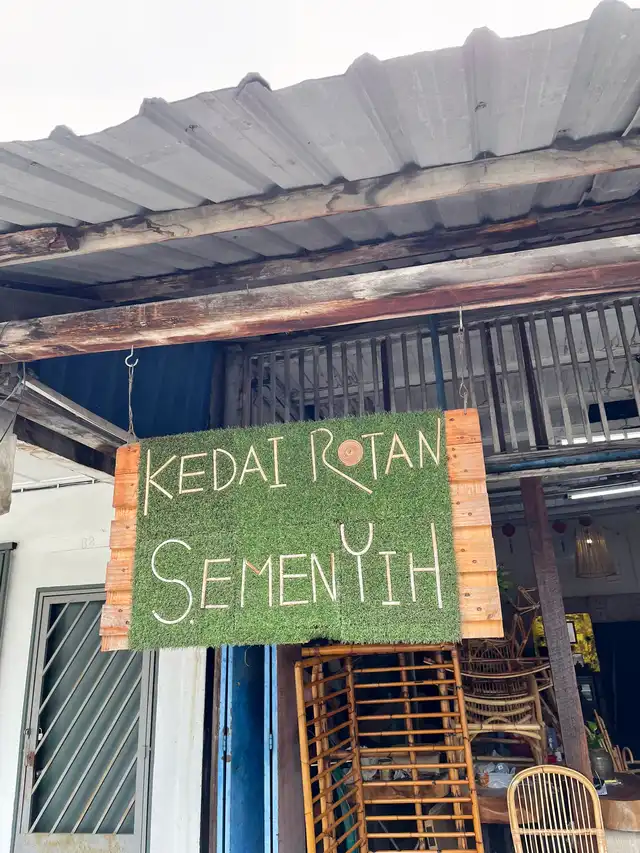 KEDAI ROTAN
SEMENYIH